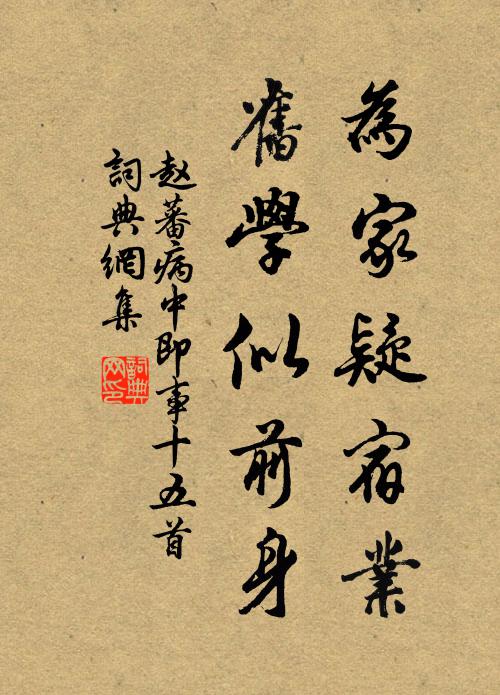 為家疑宿業
舊學似前身
赵蕃病中即事十五首
詞典網集
詞典网印